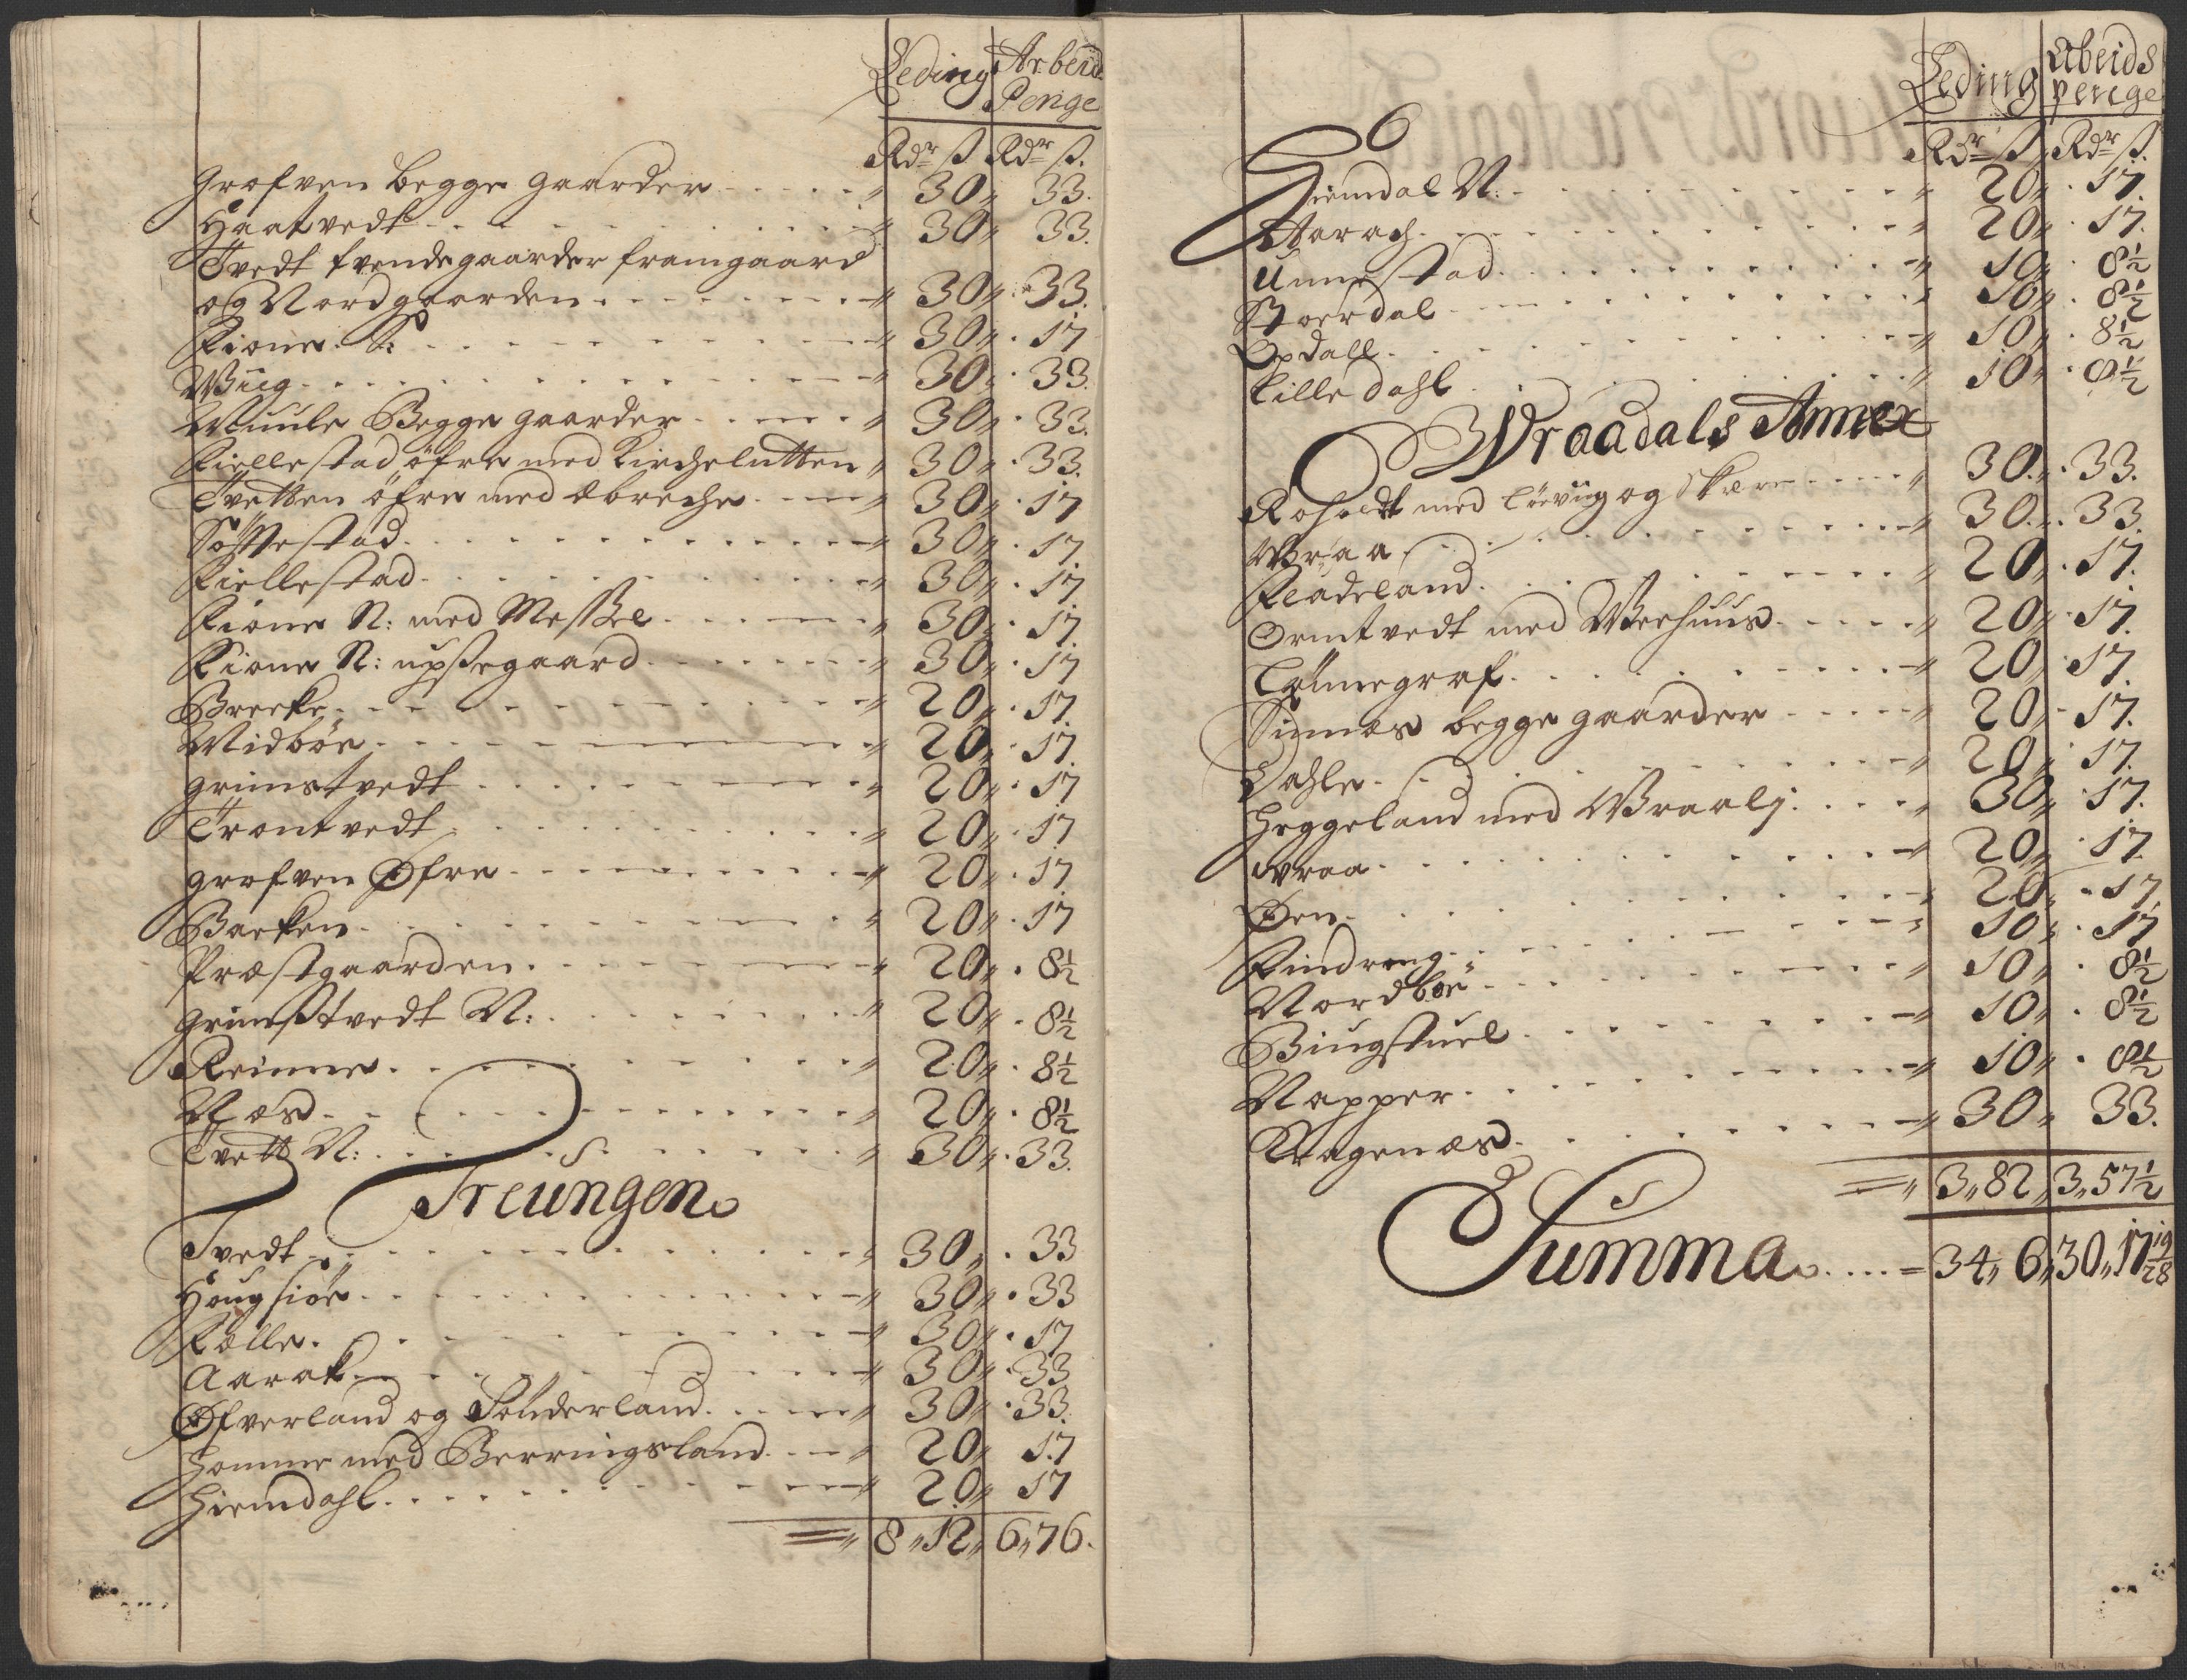 Leding Arbeids
Penge
Rdr ß Rdr ß.
Grofven begge gaarder - - - - „ 30„ 33.
Haatvedt - - - „ 30„ 33.
Tvedt tvende gaarder framgaard
og Nordgaarden - - - „ 30„ 33.
Fione S: - - - „ 30„ 17
Wiig - - - „ 30„ 33.
Muule Begge gaarder - - - „ 30„ 33.
Fiellestad öfre med Kirchelutten „ 30„ 33.
Tvetten öfre med Æbreche - - - „ 30„ 17
Söftestad - - - „ 30„ 17
Fiellestad - - - „ 30„ 17
Fione N: med Messel - - - „ 30„ 17
Fione N: upstegaard - - - „ 30„ 17
Brecke - - - „ 20„ 17.
Midböe - - - „ 20„ 17.
Grimstvedt - - - „ 20„ 17
Trontvedt - - - „ 20„ 17
Grofven Øfre - - - „ 20„ 17
Backen - - - „ 20„ 17
Præstgaarden - - - „ 20„ 8½
Grimstvedt N: - - - „ 20„ 8½
Reinne - - - „ 20„ 8½
Næs - - - „ 20„ 8½
Tvett N: - - - „ 30„ 33.
Treungen
Tvedt - - - „ 30„ 33
Hougsiöe - - - „ 30„ 33
Fölle - - - „ 30„ 17
Aarak - - - „ 30„ 33
Øfverland og Sönderland - - - „ 30„ 33.
Homme med Berringsland - - - „ 20„ 17
Hiemdahl - - - „ 20„ 17
8„12„ 6„76.
Leding Abeids
penge
Rdr ß Rdr ß.
Giemdal N: - - - „ 20„ 17.
Aarach - - - „ 20„ 17.
Unnestad - - - „ 10„ 8½
Boerdal - - - „ 10„ 8½
Opdall - - - „ 10„ 8½
Lilledahl - - - „ 10„ 8½
Wraadals Annex
Roholdt med Löeviig og Skrere - - - „ 30„ 33.
Wraa - - - „ 30„ 33.
Fladeland - - - „ 20„ 17.
Ormtvedt med Weehuus - - - „ 20„ 17.
Lönnegraf - - - „ 20„ 17.
Sinnæs begge gaarder - - - „ 20„ 17.
Dahle - - - „ 20„ 17.
Heggeland med Wraalj - - - „ 30„ 17.
Wraa - - - „ 20„ 17.
Øen - - - „ 20„ 17.
Findreng - - - „ 10„ 17
Nordböe - - - „ 10„ 8½
Bingstuel - - - „ 10„ 8½
Napper - - - „ 10„ 8½
Kragenæs - - - „ 30„ 33.
3„82„ 3„57½
Summa - - - 34„ 6„ 30„17 19/28